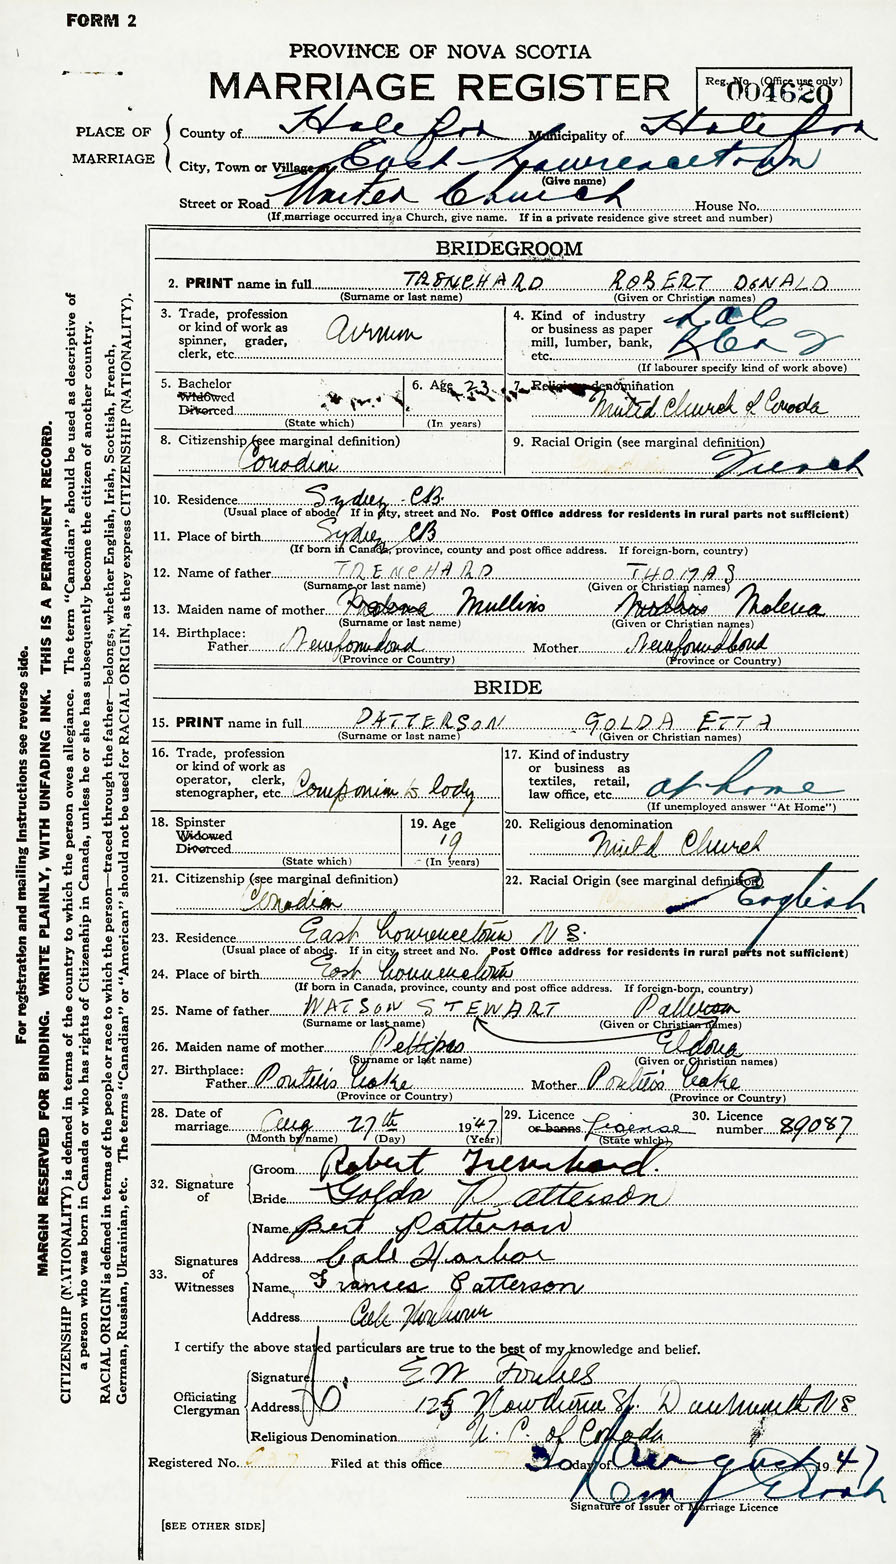 FORM 2
PROVINCE OF NOVA SCOTIA
MARRIAGE REGISTER
Reg. No. (Office use only)
004620
PLACE OF MARRIAGE
County of Halifax Municipality of Halifax
City, Town or Village of East Lawrencetown
(Give name)
Street or Road United Church House No.
(If marriage occurred in a Church, give name. If in a private residence give street and number)
BRIDEGROOM
2. PRINT name in full TRENCHARD ROBERT DONALD
(Surname or last name) (Given or Christian names)
3. Trade, profession or kind of work as spinner, grader, clerk, etc. Airman
4. Kind of industry or business as paper mill, lumber, bank, etc.
(If labourer specify kind of work above)
5. Bachelor Widowed Divorced
(State which)
6. Age 23
(In years)
7. Religious denomination
United Church of Canada
8. Citizenship (see marginal definition)
Canadian
9. Racial Origin (see marginal definition)
French
10. Residence Sydney CB.
(Usual place of abode. If in city, street and No. Post Office address for residents in rural parts not sufficient)
11. Place of birth Sydney CB
(If born in Canada, province, county and post office address. If foreign-born, country)
12. Name of father TRENCHARD THOMAS
(Surname or last name) (Given or Christian names)
13. Maiden name of mother Mullins Malena
(Surname or last name) (Given or Christian names)
14. Birthplace:
Father Newfoundland Mother Newfoundland
(Province or Country) (Province or Country)
BRIDE
15. PRINT name in full PATTERSON GOLDA ETTA
(Surname or last name) (Given or Christian names)
16. Trade, profession or kind of work as operator, clerk, stenographer, etc. Companion to lady
17. Kind of industry or business as textiles, retail, law office, etc. at home
(If unemployed answer "At Home")
18. Spinster Widowed Divorced
(State which)
19. Age
19
(In years)
20. Religious denomination
United Church
21. Citizenship (see marginal definition)
Canadian
22. Racial Origin (see marginal definition)
English
23. Residence East Lawrencetown N S.
(Usual place of abode. If in city, street and No. Post Office address for residents in rural parts not sufficient)
24. Place of birth East Lawrencetown
(If born in Canada, province, county and post office address. If foreign-born, country)
25. Name of father WATSON STEWART Patterson
(Surname or last name) (Given or Christian names)
26. Maiden name of mother Pettipas Eldona
(Surname or last name) (Given or Christian names)
27. Birthplace:
Father Porter's Lake Mother Porter's Lake
(Province or Country) (Province or Country)
28. Date of marriage Aug 27th 1947
(Month by name) (Day) (Year)
29. Licence or banns License
(State which)
30. Licence number 89087
32. Signature of
Groom Robert Trenchard.
Bride Golda Patterson
33. Signatures of Witnesses
Name Bert Patterson
Address Cole Harbor
Name Frances Patterson
Address Cole Harbour
I certify the above stated particulars are true to the best of my knowledge and belief.
Officiating Clergyman
Signature E W Forbes
Address 125 Hawthorne St. Dartmouth N S
Religious Denomination U. C. of Canada
Registered No. Filed at this office 30 day of August 1947
Signature of Issuer of Marriage Licence
[SEE OTHER SIDE]
For registration and mailing instructions see reverse side.
MARGIN RESERVED FOR BINDING. WRITE PLAINLY, WITH UNFADING INK. THIS IS A PERMANENT RECORD.
CITIZENSHIP (NATIONALITY) is defined in terms of the country to which the person owes allegiance. The term "Canadian" should be used as descriptive of
a person who was born in Canada or who has rights of Citizenship in Canada, unless he or she has subsequently become the citizen of another country.
RACIAL ORIGIN is defined in terms of the people or race to which the person—traced through the father—belongs, whether English, Irish, Scottish, French,
German, Russian, Ukrainian, etc. The terms "Canadian" or "American" should not be used for RACIAL ORIGIN, as they express CITIZENSHIP (NATIONALITY).